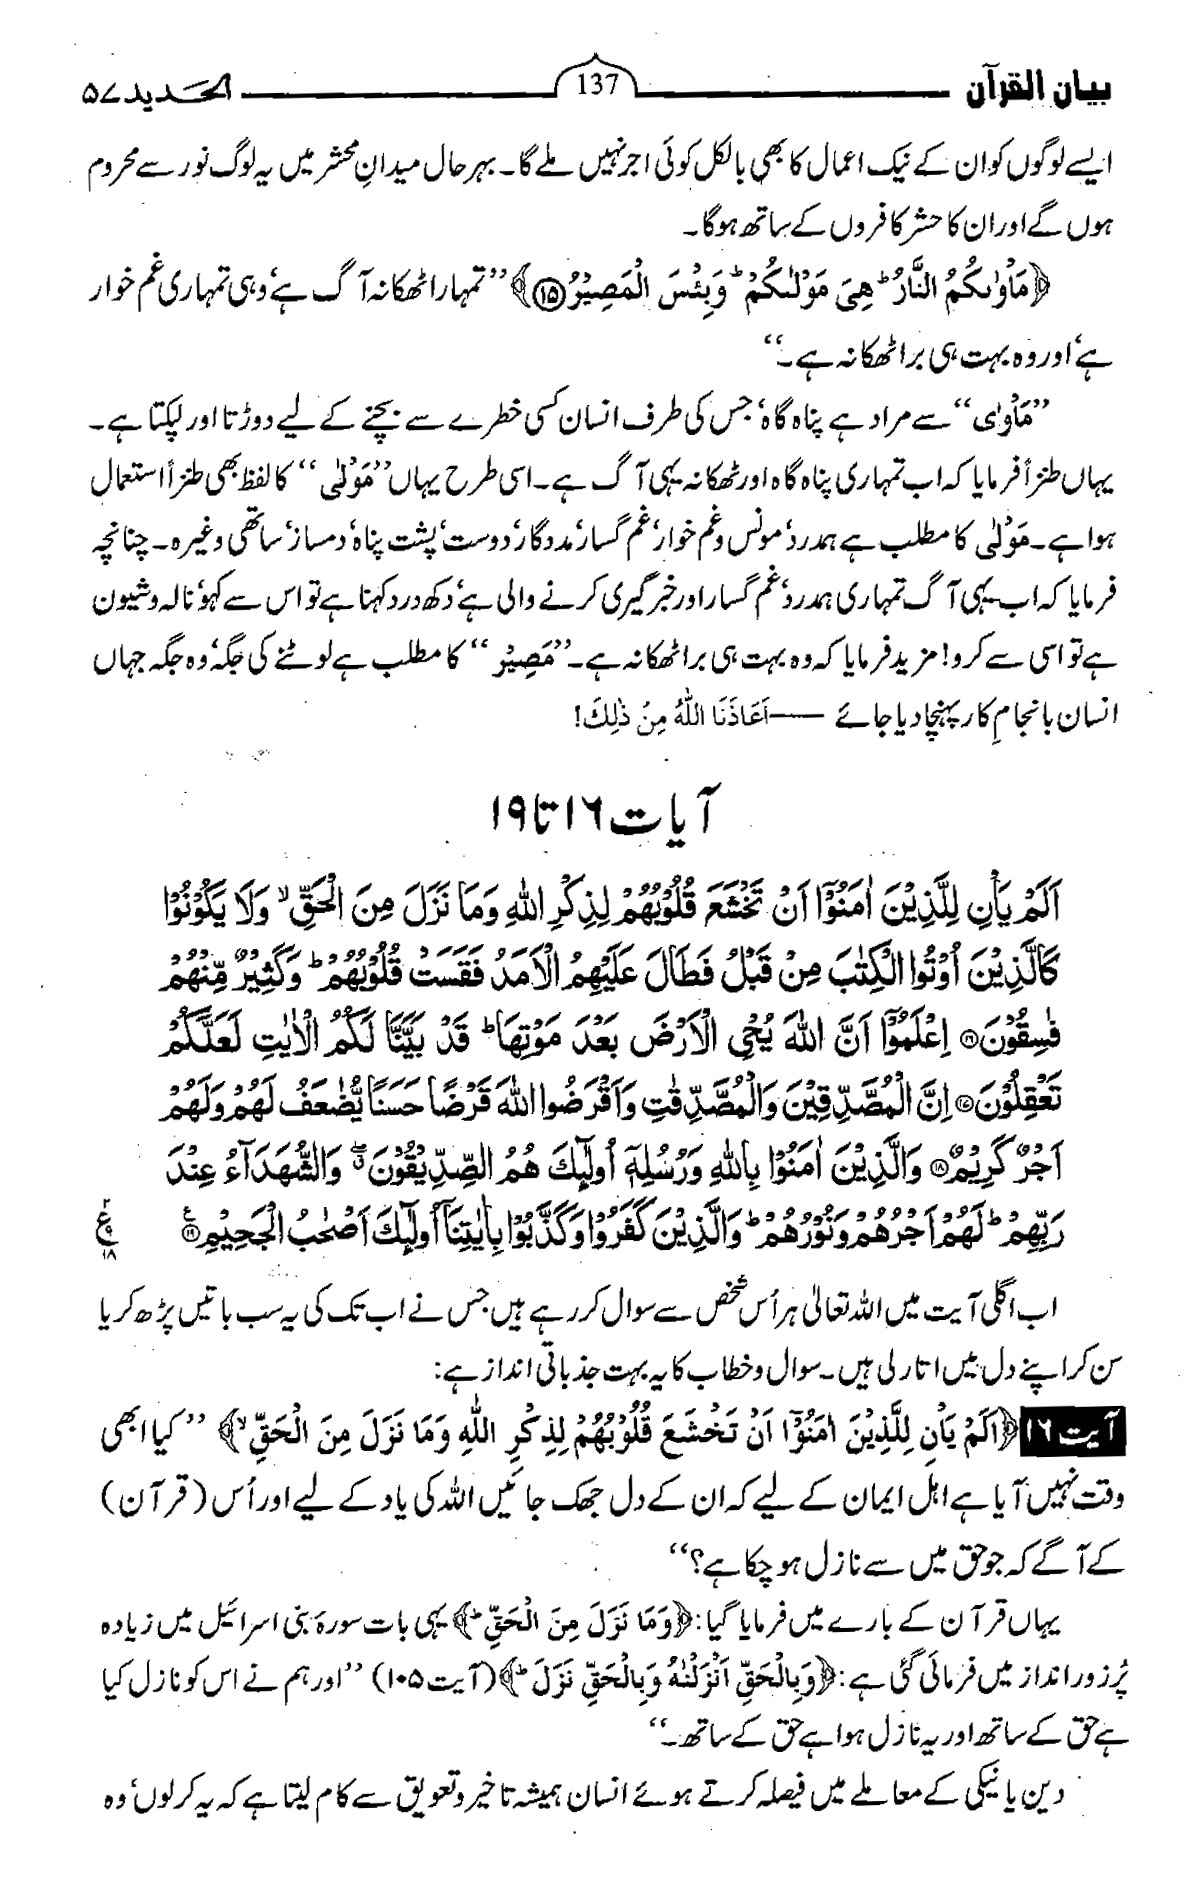 بیان القرآن 137 الحدید ۵۷
ایسے لوگوں کو ان کے نیک اعمال کا بھی بالکل کوئی اجر نہیں ملے گا۔ بہرحال میدانِ محشر میں یہ لوگ نور سے محروم
ہوں گے اور ان کا حشر کافروں کے ساتھ ہوگا۔
﴿مَاْوٰىكُمُ النَّارُ ؕ هِیَ مَوْلٰىكُمْ ؕ وَبِئْسَ الْمَصِیْرُ ⑮﴾ ’’تمہارا ٹھکانہ آگ ہے‘ وہی تمہاری غم خوار
ہے‘ اور وہ بہت ہی برا ٹھکانہ ہے۔‘‘
’’مَاْوٰی‘‘ سے مراد ہے پناہ گاہ‘ جس کی طرف انسان کسی خطرے سے بچنے کے لیے دوڑتا اور لپکتا ہے۔
یہاں طنزاً فرمایا کہ اب تمہاری پناہ گاہ اور ٹھکانہ یہی آگ ہے۔ اسی طرح یہاں ’’مَوْلٰی‘‘ کا لفظ بھی طنزاً استعمال
ہوا ہے۔ مَوْلٰی کا مطلب ہے ہمدرد‘ مونس و غم خوار‘ غم گسار‘ مددگار‘ دوست‘ پشت پناہ‘ دمساز‘ ساتھی وغیرہ۔ چنانچہ
فرمایا کہ اب یہی آگ تمہاری ہمدرد‘ غم گسار اور خبرگیری کرنے والی ہے‘ دکھ درد کہنا ہے تو اس سے کہو‘ نالہ و شیون
ہے تو اسی سے کرو! مزید فرمایا کہ وہ بہت ہی برا ٹھکانہ ہے۔ ’’مَصِیْر‘‘ کا مطلب ہے لوٹنے کی جگہ‘ وہ جگہ جہاں
انسان بانجامِ کار پہنچا دیا جائے —— اَعَاذَنَا اللّٰهُ مِنْ ذٰلِكَ!
آیات ۱۶ تا ۱۹
اَلَمْ یَاْنِ لِلَّذِیْنَ اٰمَنُوْۤا اَنْ تَخْشَعَ قُلُوْبُهُمْ لِذِكْرِ اللّٰهِ وَمَا نَزَلَ مِنَ الْحَقِّ ۙ وَلَا یَكُوْنُوْا
كَالَّذِیْنَ اُوْتُوا الْكِتٰبَ مِنْ قَبْلُ فَطَالَ عَلَیْهِمُ الْاَمَدُ فَقَسَتْ قُلُوْبُهُمْ ؕ وَكَثِیْرٌ مِّنْهُمْ
فٰسِقُوْنَ ⑯ اِعْلَمُوْۤا اَنَّ اللّٰهَ یُحْیِ الْاَرْضَ بَعْدَ مَوْتِهَا ؕ قَدْ بَیَّنَّا لَكُمُ الْاٰیٰتِ لَعَلَّكُمْ
تَعْقِلُوْنَ ⑰ اِنَّ الْمُصَّدِّقِیْنَ وَالْمُصَّدِّقٰتِ وَاَقْرَضُوا اللّٰهَ قَرْضًا حَسَنًا یُّضٰعَفُ لَهُمْ وَلَهُمْ
اَجْرٌ كَرِیْمٌ ⑱ وَالَّذِیْنَ اٰمَنُوْا بِاللّٰهِ وَرُسُلِهٖۤ اُولٰٓئِكَ هُمُ الصِّدِّیْقُوْنَ ۖ وَالشُّهَدَآءُ عِنْدَ
رَبِّهِمْ ؕ لَهُمْ اَجْرُهُمْ وَنُوْرُهُمْ ؕ وَالَّذِیْنَ كَفَرُوْا وَكَذَّبُوْا بِاٰیٰتِنَاۤ اُولٰٓئِكَ اَصْحٰبُ الْجَحِیْمِ ⑲ ع ۹ ۱۸
اب اگلی آیت میں اللہ تعالیٰ ہر اُس شخص سے سوال کر رہے ہیں جس نے اب تک کی یہ سب باتیں پڑھ کر یا
سن کر اپنے دل میں اتار لی ہیں۔ سوال و خطاب کا یہ بہت جذباتی انداز ہے:
آیت ۱۶ ﴿اَلَمْ یَاْنِ لِلَّذِیْنَ اٰمَنُوْۤا اَنْ تَخْشَعَ قُلُوْبُهُمْ لِذِكْرِ اللّٰهِ وَمَا نَزَلَ مِنَ الْحَقِّ ۙ﴾ ’’کیا ابھی
وقت نہیں آیا ہے اہل ایمان کے لیے کہ ان کے دل جھک جائیں اللہ کی یاد کے لیے اور اُس (قرآن)
کے آگے کہ جو حق میں سے نازل ہو چکا ہے؟‘‘
یہاں قرآن کے بارے میں فرمایا گیا: ﴿وَمَا نَزَلَ مِنَ الْحَقِّ ؕ﴾ یہی بات سورۂ بنی اسرائیل میں زیادہ
پُرزور انداز میں فرمائی گئی ہے: ﴿وَبِالْحَقِّ اَنْزَلْنٰهُ وَبِالْحَقِّ نَزَلَ ؕ﴾ (آیت ۱۰۵) ’’اور ہم نے اس کو نازل کیا
ہے حق کے ساتھ اور یہ نازل ہوا ہے حق کے ساتھ۔‘‘
دین یا نیکی کے معاملے میں فیصلہ کرتے ہوئے انسان ہمیشہ تاخیر و تعویق سے کام لیتا ہے کہ یہ کر لوں‘ وہ